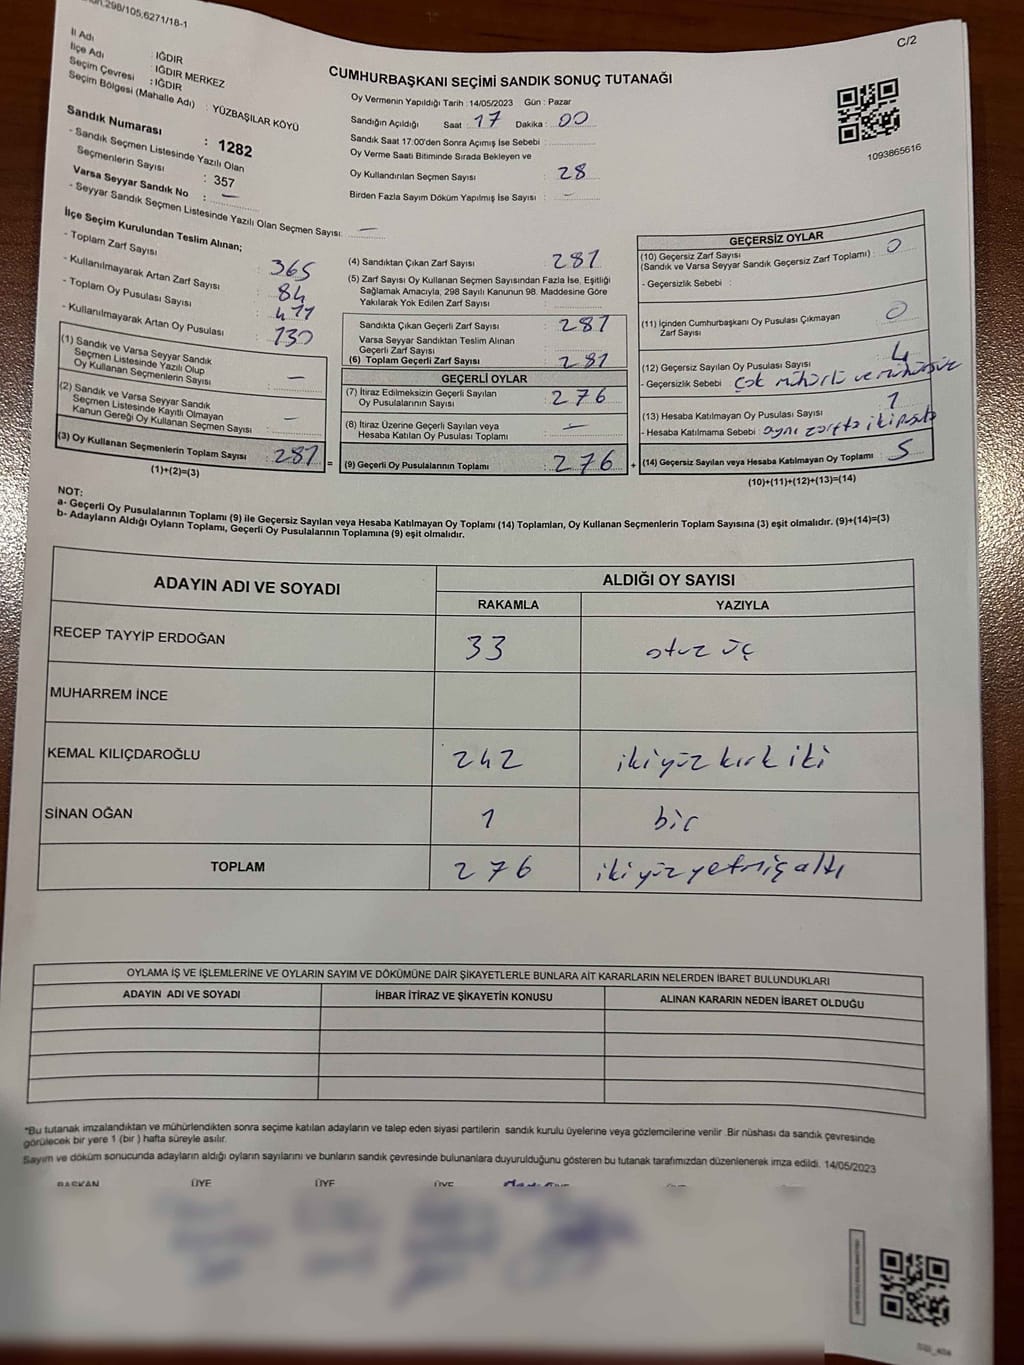 298/105,6271/18-1
C/2
İl Adı : IĞDIR
İlçe Adı : IĞDIR MERKEZ
Seçim Çevresi : IĞDIR
Seçim Bölgesi (Mahalle Adı) : YÜZBAŞILAR KÖYÜ
Sandık Numarası : 1282
- Sandık Seçmen Listesinde Yazılı Olan
Seçmenlerin Sayısı : 357
Varsa Seyyar Sandık No : —
- Seyyar Sandık Seçmen Listesinde Yazılı Olan Seçmen Sayısı: —
CUMHURBAŞKANI SEÇİMİ SANDIK SONUÇ TUTANAĞI
Oy Vermenin Yapıldığı Tarih : 14/05/2023 Gün : Pazar
Sandığın Açıldığı Saat : 17 Dakika : 00
Sandık Saat 17:00'den Sonra Açımış İse Sebebi :
Oy Verme Saati Bitiminde Sırada Bekleyen ve
Oy Kullandırılan Seçmen Sayısı : 28
Birden Fazla Sayım Döküm Yapılmış İse Sayısı : —
1093865616
İlçe Seçim Kurulundan Teslim Alınan;
- Toplam Zarf Sayısı : 365
- Kullanılmayarak Artan Zarf Sayısı : 84
- Toplam Oy Pusulası Sayısı : 411
- Kullanılmayarak Artan Oy Pusulası : 130
(1) Sandık ve Varsa Seyyar Sandık
Seçmen Listesinde Yazılı Olup
Oy Kullanan Seçmenlerin Sayısı : —
(2) Sandık ve Varsa Seyyar Sandık
Seçmen Listesinde Kayıtlı Olmayan
Kanun Gereği Oy Kullanan Seçmen Sayısı : —
(3) Oy Kullanan Seçmenlerin Toplam Sayısı : 281 =
(1)+(2)=(3)
(4) Sandıktan Çıkan Zarf Sayısı : 281
(5) Zarf Sayısı Oy Kullanan Seçmen Sayısından Fazla İse, Eşitliği
Sağlamak Amacıyla, 298 Sayılı Kanunun 98. Maddesine Göre
Yakılarak Yok Edilen Zarf Sayısı :
Sandıkta Çıkan Geçerli Zarf Sayısı : 281
Varsa Seyyar Sandıktan Teslim Alınan
Geçerli Zarf Sayısı :
(6) Toplam Geçerli Zarf Sayısı : 281
GEÇERLİ OYLAR
(7) İtiraz Edilmeksizin Geçerli Sayılan
Oy Pusulalarının Sayısı : 276
(8) İtiraz Üzerine Geçerli Sayılan veya
Hesaba Katılan Oy Pusulası Toplamı : —
(9) Geçerli Oy Pusulalarının Toplamı : 276 +
GEÇERSİZ OYLAR
(10) Geçersiz Zarf Sayısı
(Sandık ve Varsa Seyyar Sandık Geçersiz Zarf Toplamı) : 0
- Geçersizlik Sebebi :
(11) İçinden Cumhurbaşkanı Oy Pusulası Çıkmayan
Zarf Sayısı : 0
(12) Geçersiz Sayılan Oy Pusulası Sayısı : 4
- Geçersizlik Sebebi : çok mühürlü ve mühürsüz
(13) Hesaba Katılmayan Oy Pusulası Sayısı : 1
- Hesaba Katılmama Sebebi : aynı zarfta iki pusula
(14) Geçersiz Sayılan veya Hesaba Katılmayan Oy Toplamı : 5
(10)+(11)+(12)+(13)=(14)
NOT:
a- Geçerli Oy Pusulalarının Toplamı (9) ile Geçersiz Sayılan veya Hesaba Katılmayan Oy Toplamı (14) Toplamları, Oy Kullanan Seçmenlerin Toplam Sayısına (3) eşit olmalıdır. (9)+(14)=(3)
b- Adayların Aldığı Oyların Toplamı, Geçerli Oy Pusulalarının Toplamına (9) eşit olmalıdır.
ADAYIN ADI VE SOYADI ALDIĞI OY SAYISI
RAKAMLA YAZIYLA
RECEP TAYYİP ERDOĞAN 33 otuz üç
MUHARREM İNCE
KEMAL KILIÇDAROĞLU 242 ikiyüz kırk iki
SİNAN OĞAN 1 bir
TOPLAM 276 ikiyüz yetmiş altı
OYLAMA İŞ VE İŞLEMLERİNE VE OYLARIN SAYIM VE DÖKÜMÜNE DAİR ŞİKAYETLERLE BUNLARA AİT KARARLARIN NELERDEN İBARET BULUNDUKLARI
ADAYIN ADI VE SOYADI İHBAR İTİRAZ VE ŞİKAYETİN KONUSU ALINAN KARARIN NEDEN İBARET OLDUĞU
*Bu tutanak imzalandıktan ve mühürlendikten sonra seçime katılan adayların ve talep eden siyasi partilerin sandık kurulu üyelerine veya gözlemcilerine verilir. Bir nüshası da sandık çevresinde
görülecek bir yere 1 (bir ) hafta süreyle asılır.
Sayım ve döküm sonucunda adayların aldığı oyların sayılarını ve bunların sandık çevresinde bulunanlara duyurulduğunu gösteren bu tutanak tarafımızdan düzenlenerek imza edildi. 14/05/2023
BAŞKAN ÜYE ÜYE ÜYE